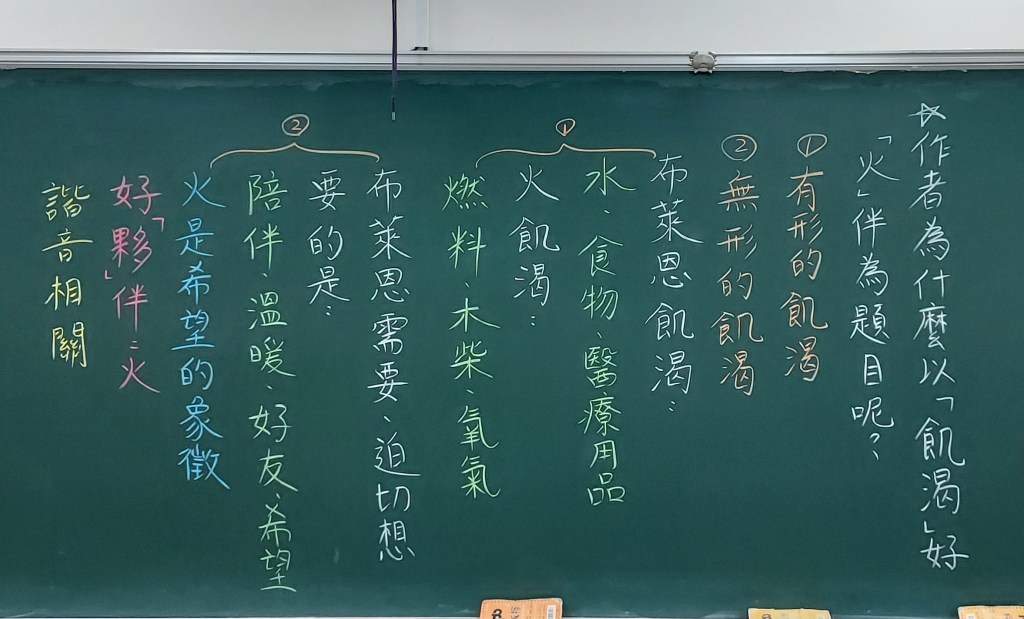 ☆作者為什麼以「飢渴」好
「火」伴為題目呢？
①有形的飢渴
②無形的飢渴
①
布萊恩飢渴：
水、食物、醫療用品
火飢渴：
燃料、木柴、氧氣
②
布萊恩需要、迫切想
要的是：
陪伴、溫暖、好友、希望
火是希望的象徵
好「夥」伴：火
諧音相關